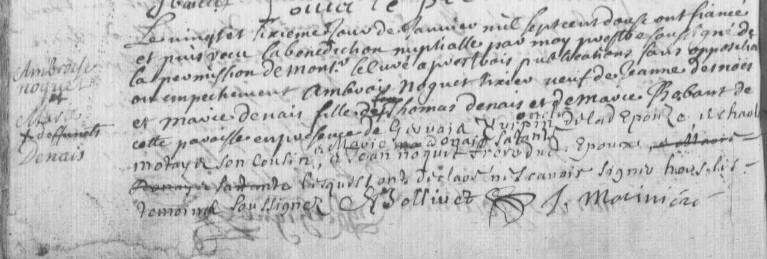 Le vingt et sixieme Jour de Janvier mil sept cent douse ont fiancé
et puis reçu la benediction nuptialle par moy prestre soussigné de
la permission de monsr le curé apres trois publications sans opposition
ou empechement Ambrois noquet tixier veuf de Jeanne desnoes
et marie denais fille de Thomas denais et de marie Robant de
cette paroisse en presence de Gervais oncle de lad Epouze, et charle
motaye son cousin, marie denais sa tante Jean noquet frere dud Epoux
sa tante lesquels ont declaré ne scavoir signer hors les
temoins soussignez Bollivet J. Moriniere
Ambroise
noquet
et
Marie
+ deffuncts
Denais